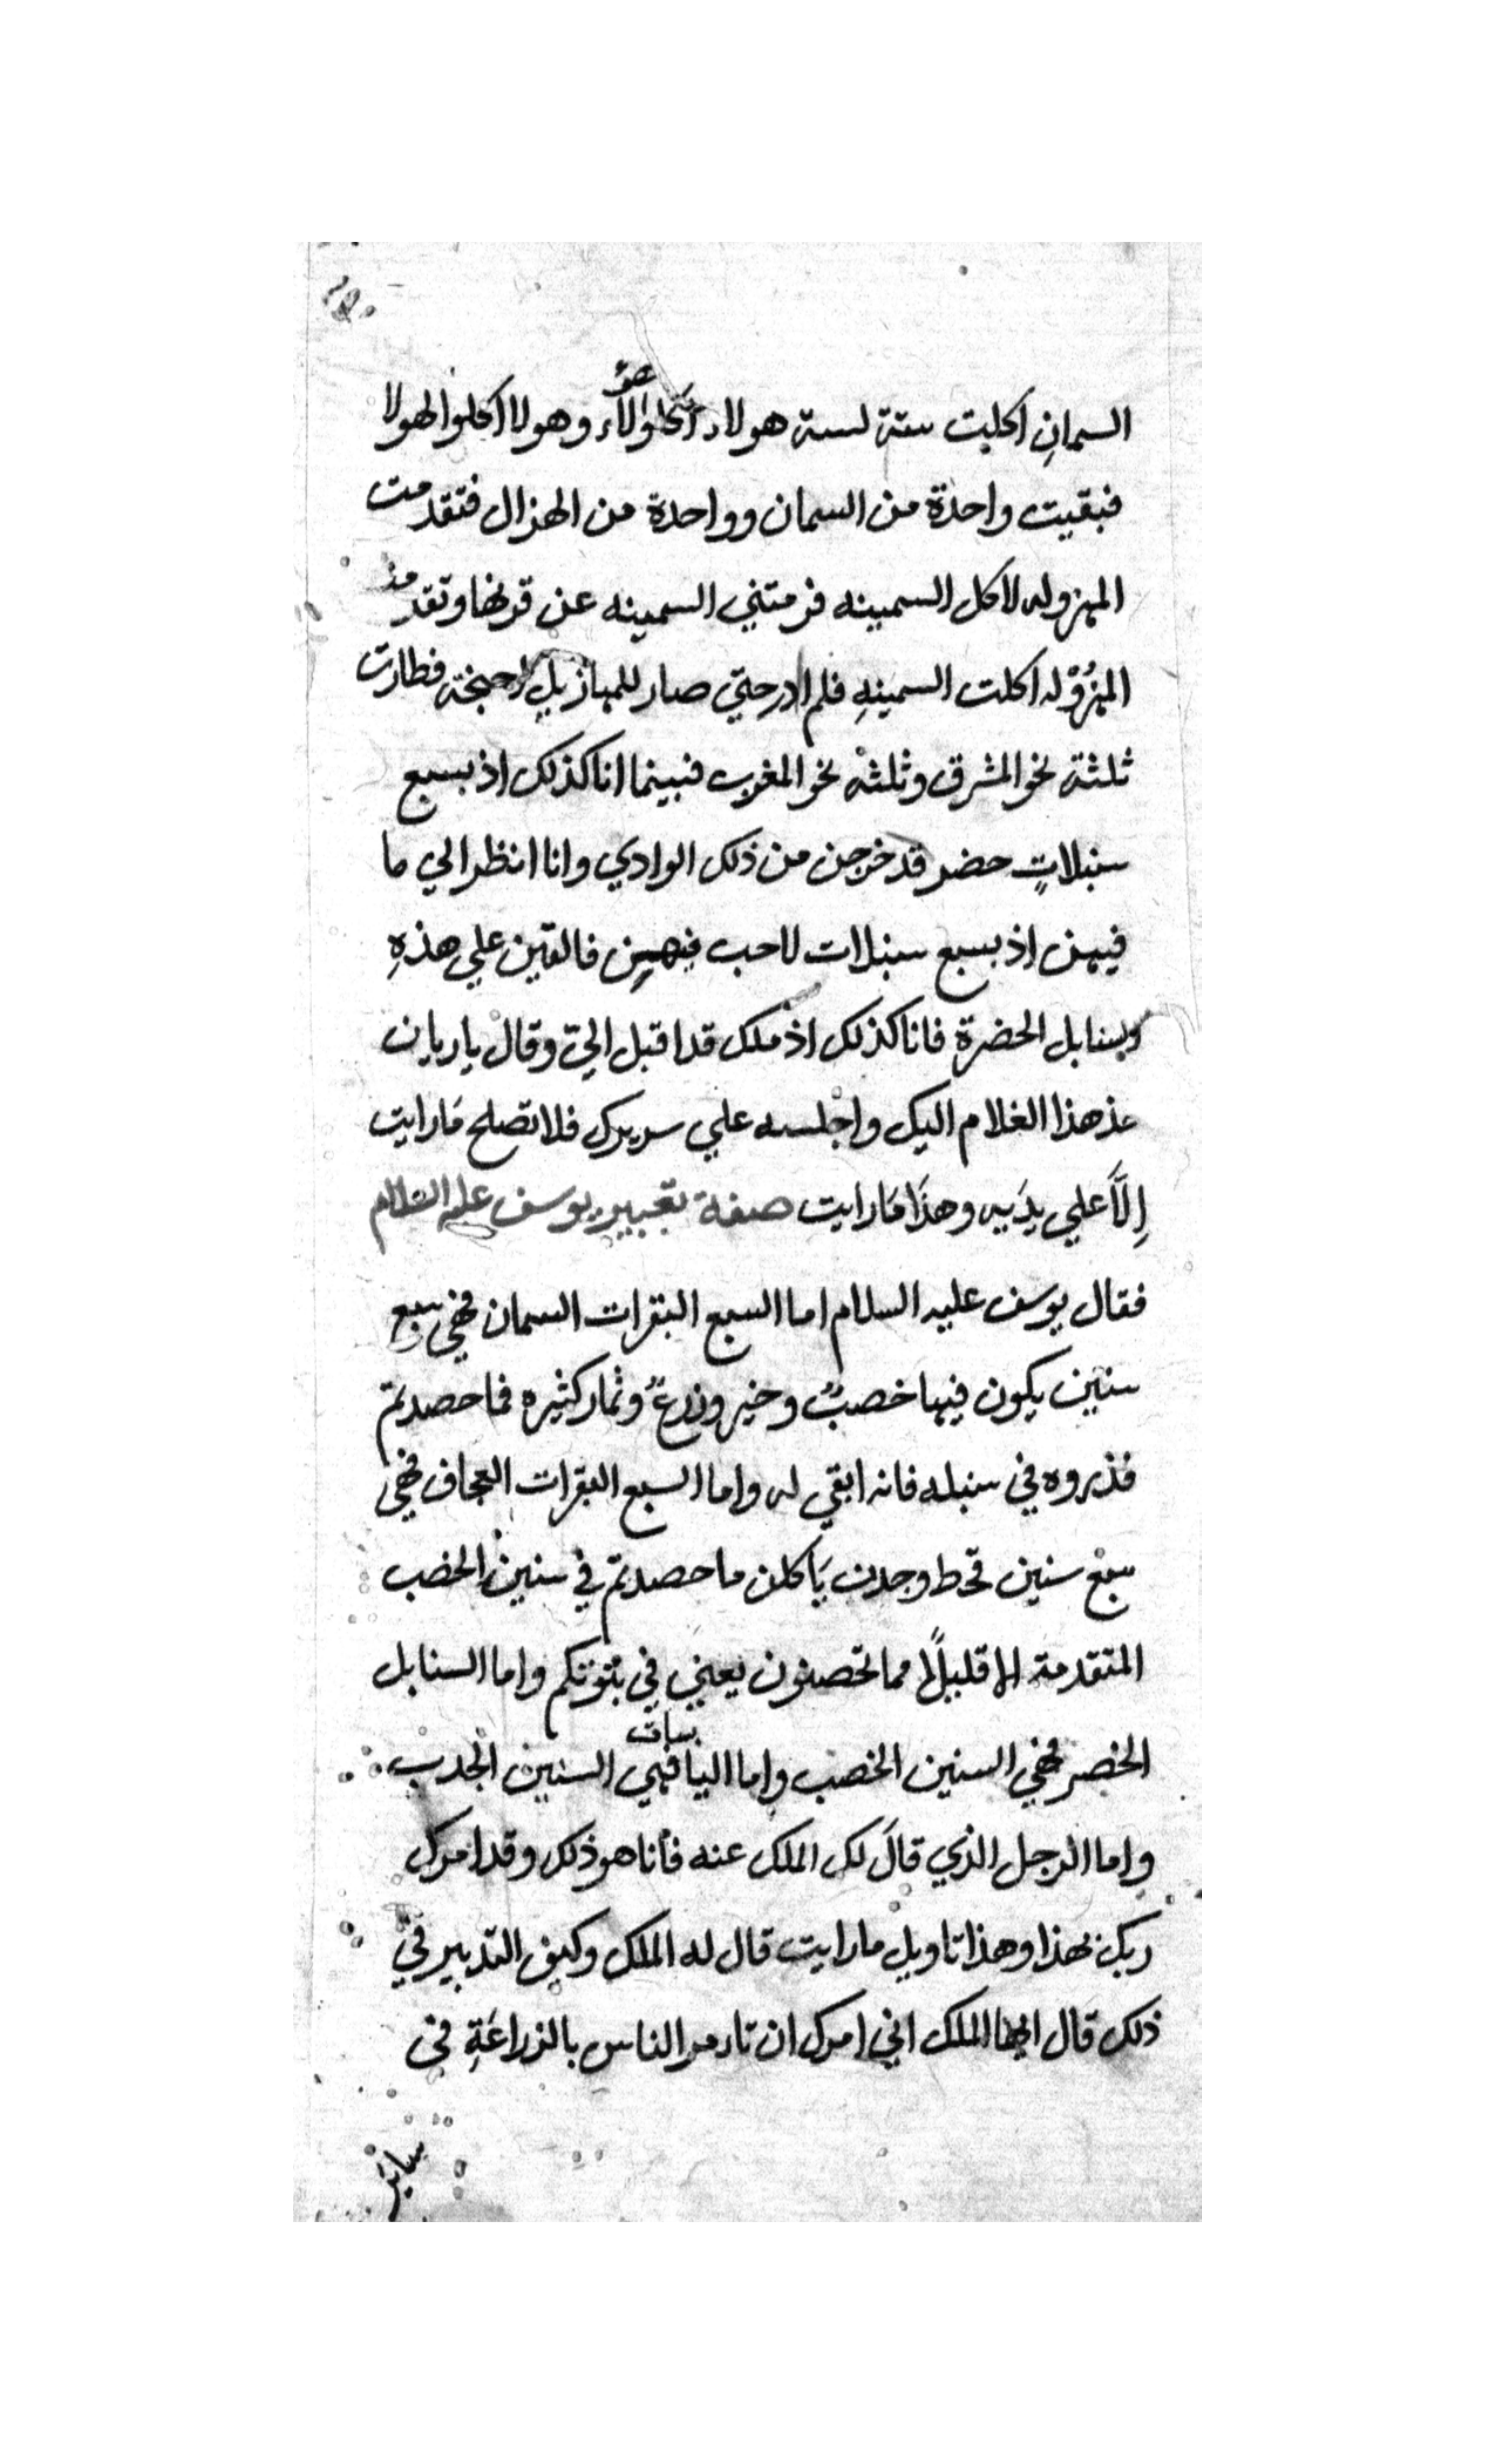 السمانِ اكلت ستة لستة هولاء اكلوا هؤلاء وهولا اكلوا لهولا
فبقيت واحدة من السمان وواحدة من الهزال فتقدمت
المهزوله لاكل السمينه فزمتني السمينه عن قرنها وتقدمت
المهزوله اكلت السمينهِ فلم ادر حتي صار للمهازيل اجنحة فطارت
ثلثة نحو المشرق وثلثة نحو المغرب فبينما انا كذلك اذ بسبع
سنبلاتٍ خضر قد خرجن من ذلك الوادي وانا انظر الي ما
فيهن اذ بسبع سنبلات لا حب فيهن فالتقين علي هذهِ
السنابل الخضرة فانا كذلك اذ ملك قد اقبل اليّ وقال يا ريان
خذ هذا الغلام اليك واجلسه علي سريرك فلا تصلح مارايت
اِلَّا علي يدَيه وهذَا مَارايت صفة تعبير يوسف عليه السلام
فقال يوسف عليه السلام اما السبع البقرات السمان فهي سبع
سنين يكون فيها خصبٌ وخير وزرعٌ وثمار كثيره فما حصدتم
فذروه في سنبله فانه ابقي له واما السبع البقرات العجاف فهي
سبع سنين قحط وجدب يَاكلن ما حصدتم في سنين الخصب
المتقدمة الا قليلًا مما تحصنون يعني في بيوتكم واما السنابل
الخضر فهي السنين الخصب واما اليابسات فهي السنين الجدب
واما الرجل الذي قالَ لك الملك عنه فأنا هو ذلك وقد امرك
ربك بهذا وهذا تاويل مارايت قال له الملك وكيف التدبير في
ذلك قال ايها الملك اني امرك ان تامر الناس بالزراعَةِ في